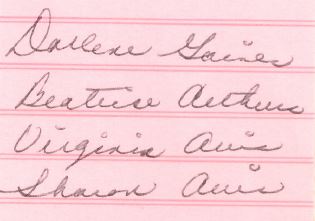 Darlene Gaines
Beatrise Arthurs
Virginia Avis
Sharon Avis